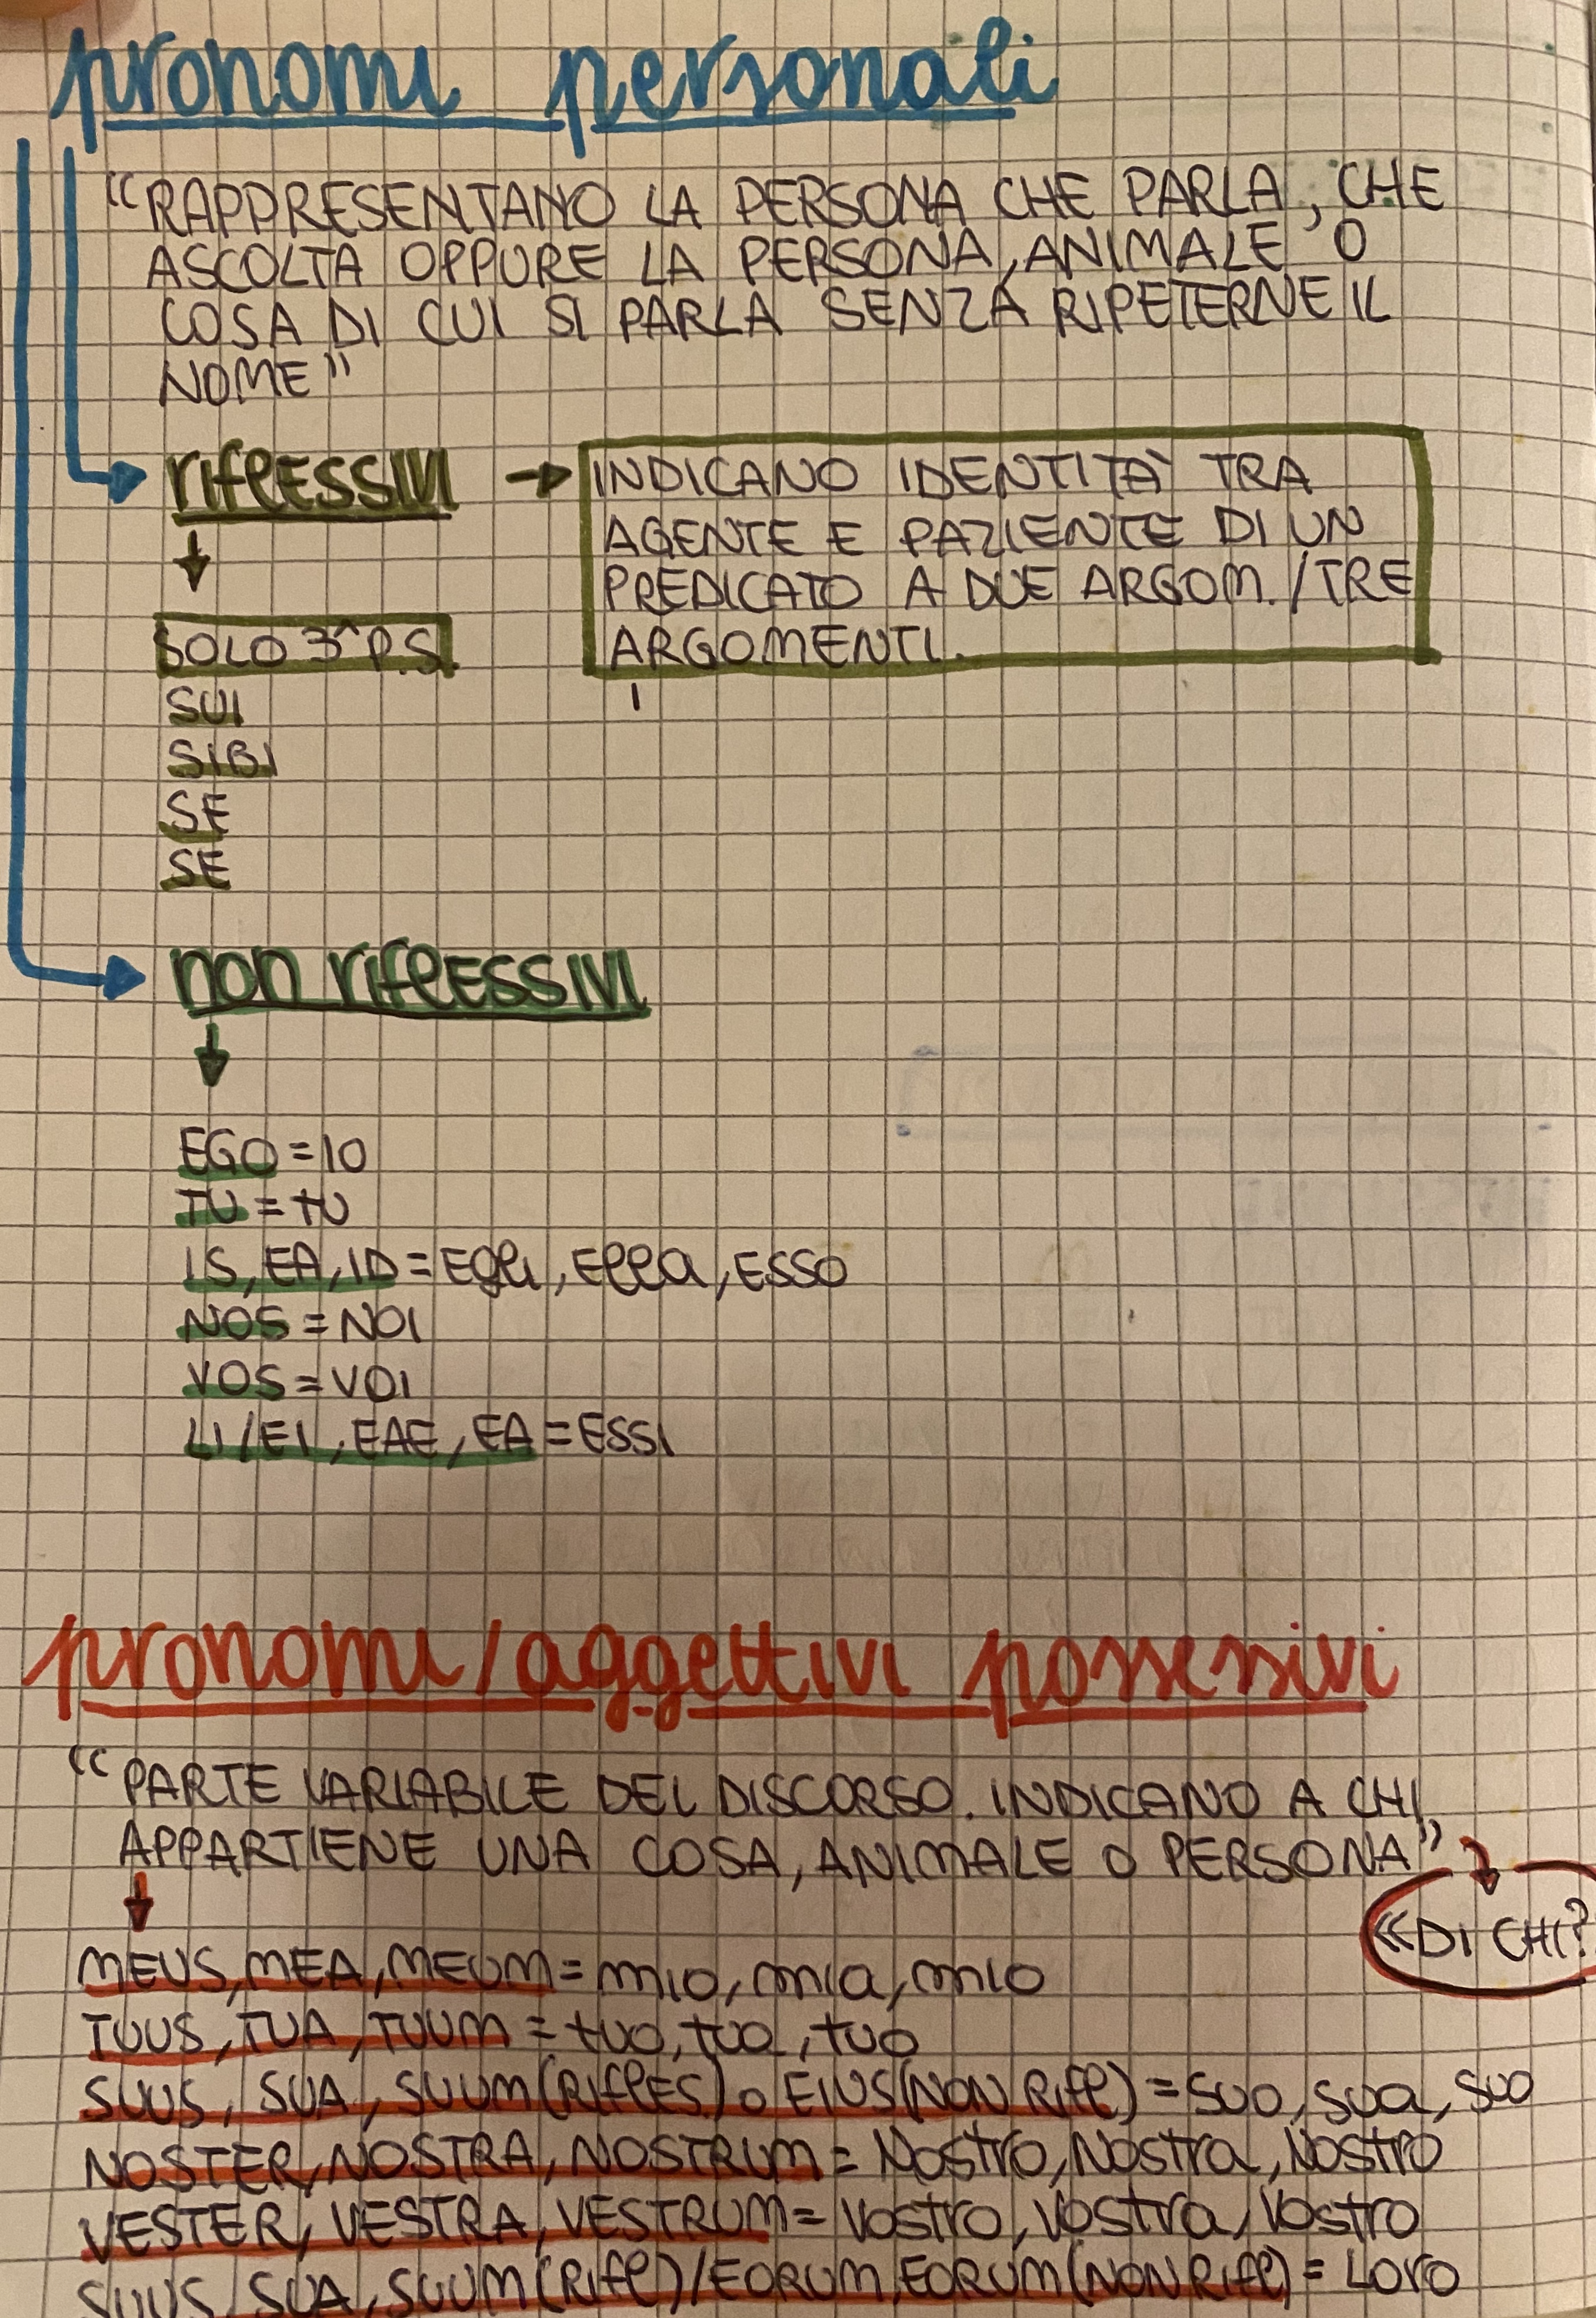 pronomi personali
“RAPPRESENTANO LA PERSONA CHE PARLA, CHE
ASCOLTA OPPURE LA PERSONA, ANIMALE O
COSA DI CUI SI PARLA SENZA RIPETERNE IL
NOME”
riflESSIVI → INDICANO IDENTITÀ TRA
AGENTE E PAZIENTE DI UN
PREDICATO A DUE ARGOM./TRE
ARGOMENTI.
SOLO 3^P.S.
SUI
SIBI
SE
SE
non riflESSIVI
EGO = IO
TU = tU
IS, EA, ID = Egli, Ella, ESSO
NOS = NOI
VOS = VOI
LI/EI, EAE, EA = ESSI
pronomi/aggettivi possessivi
“PARTE VARIABILE DEL DISCORSO. INDICANO A CHI
APPARTIENE UNA COSA, ANIMALE O PERSONA”
«DI CHI?
MEUS, MEA, MEUM = mIO, mIa, mIO
TUUS, TUA, TUUM = tUO, tUa, tUO
SUUS, SUA, SUUM (RIflES.) o EIUS (NON RIfl) = SUO, SUa, SUO
NOSTER, NOSTRA, NOSTRUM = Nostro, Nostra, Nostro
VESTER, VESTRA, VESTRUM = Vostro, Vostra, Vostro
SUUS, SUA, SUUM (RIfl)/EORUM, EORUM (NON RIfl) = LOrO